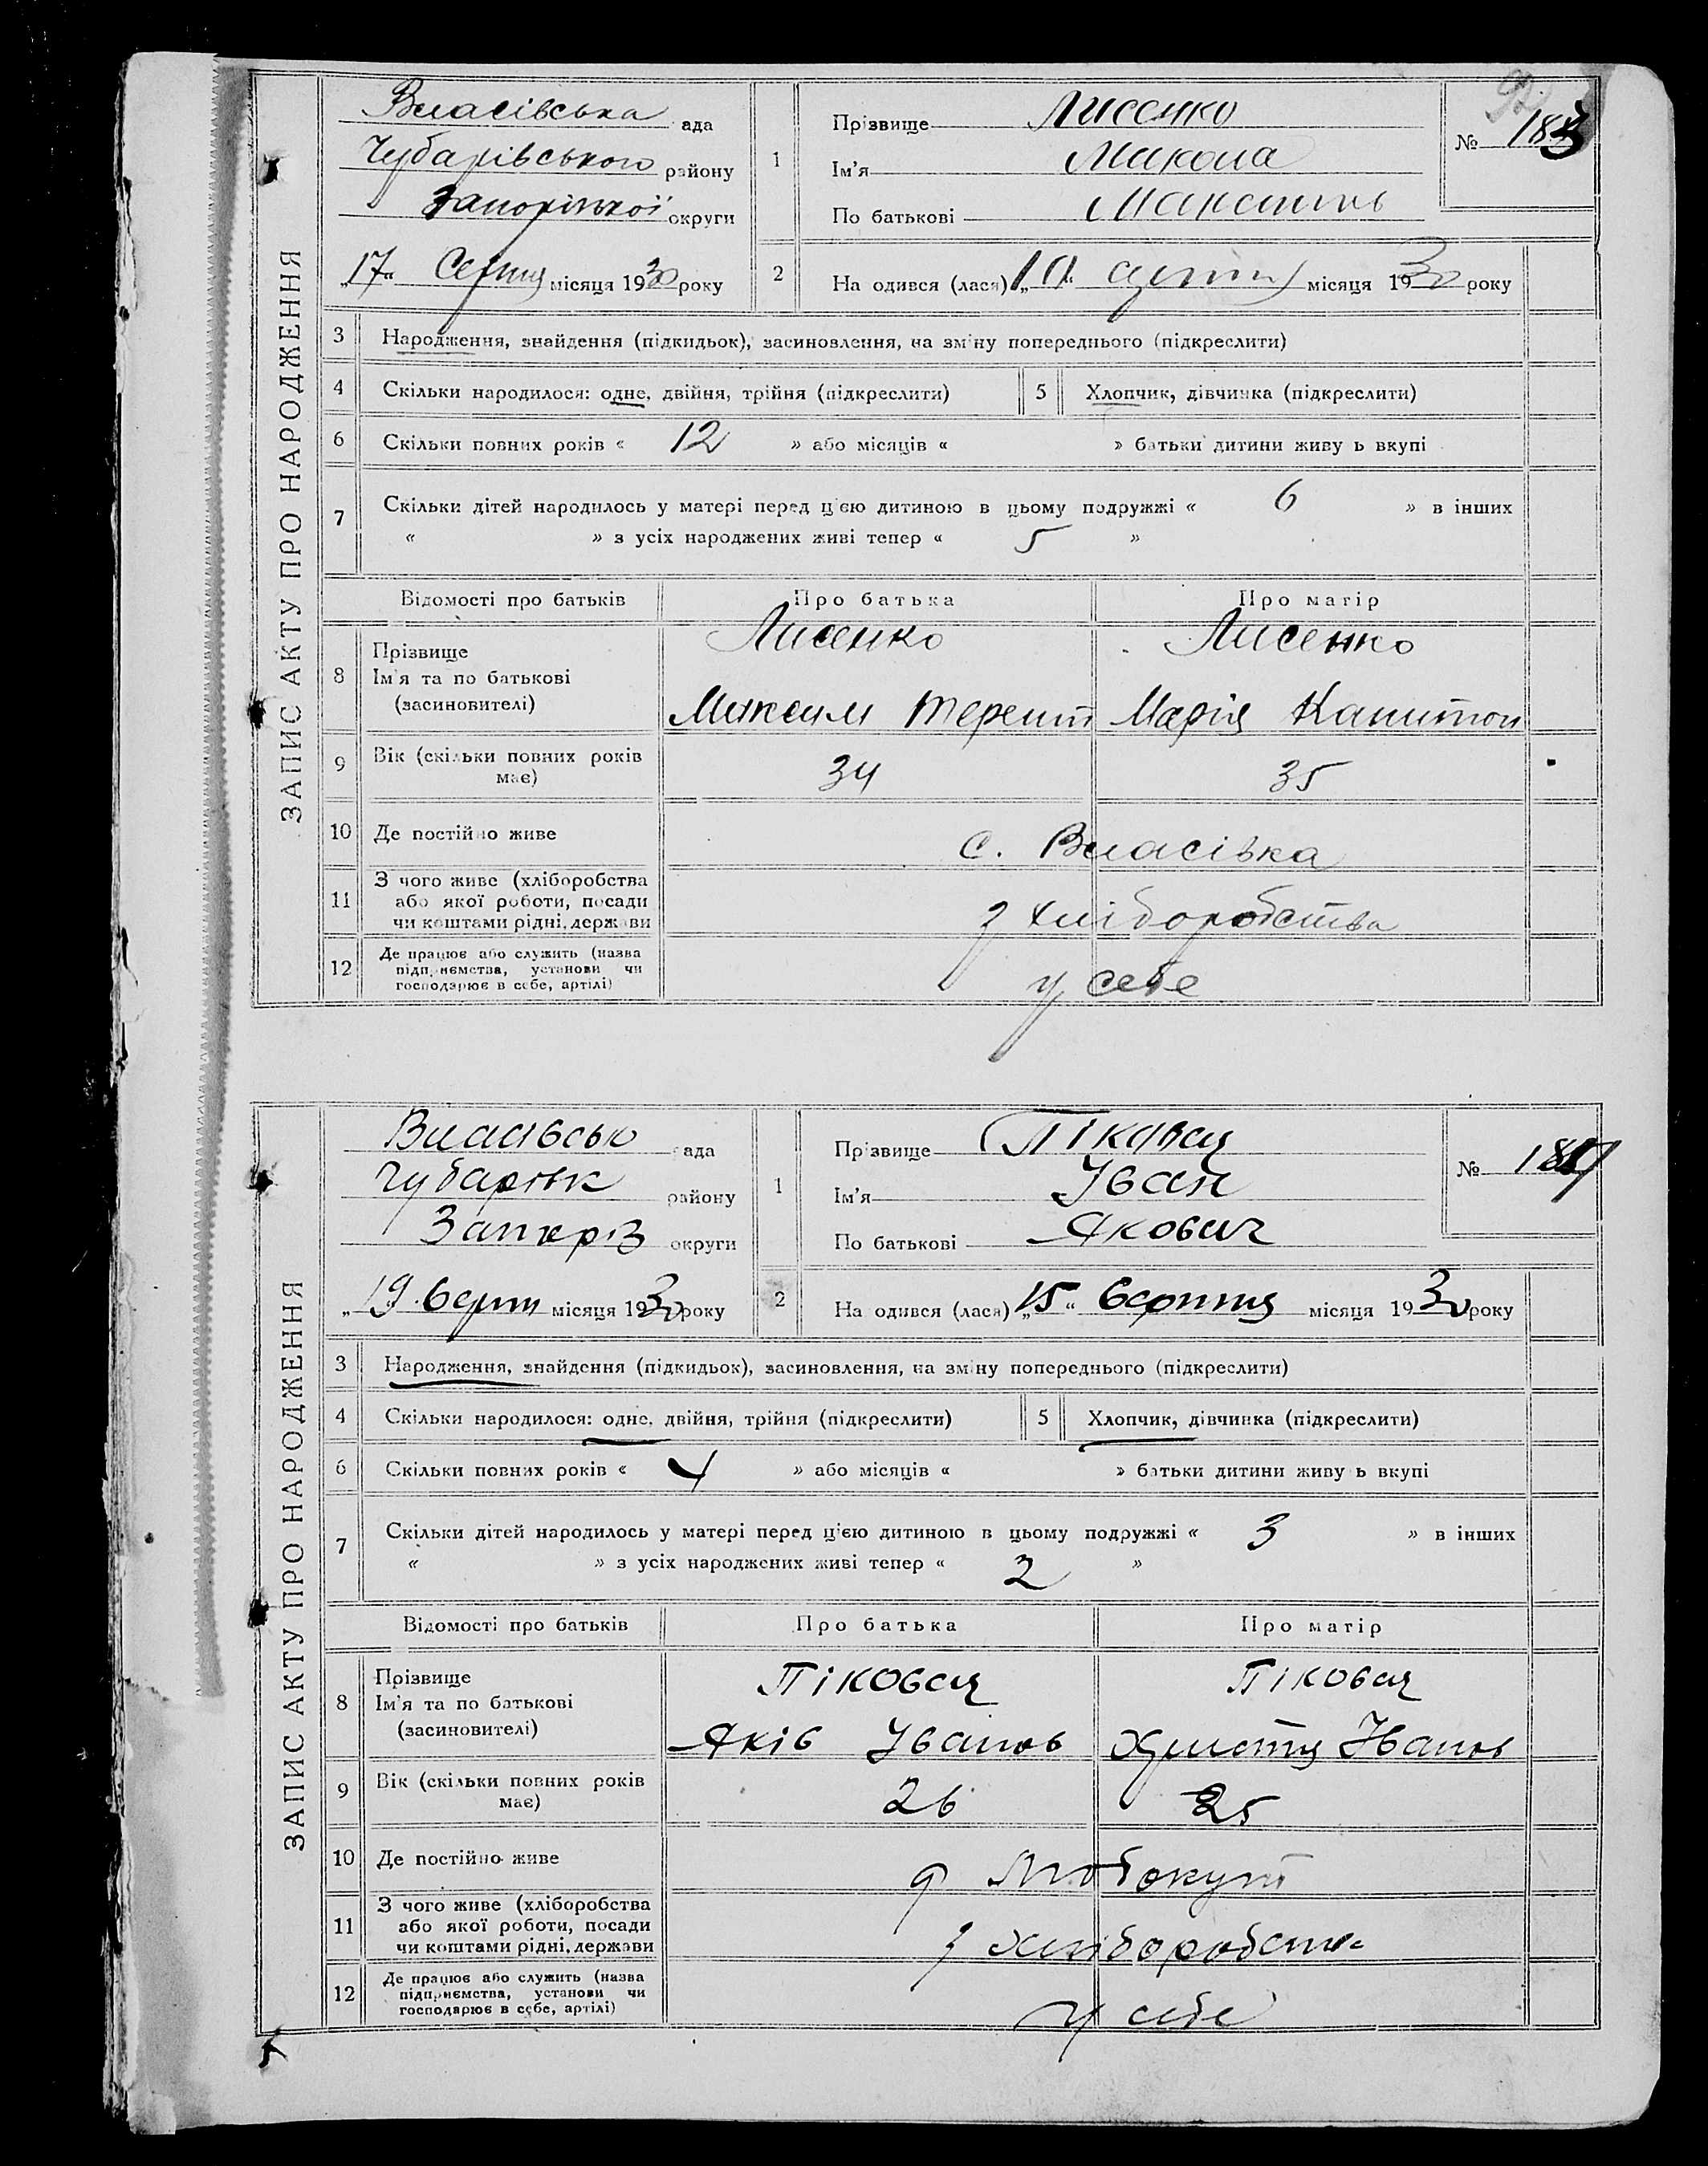 ЗАПИС АКТУ ПРО НАРОДЖЕННЯ
Власівська ада
Чубарівського району
Запорізької округи
„17“ Серпня місяця 1930 року
1 Прізвище Лисенко
Ім'я Микола
По батькові
№ 183
2 На одився (лася) місяця 1930 року
3 Народження, знайдення (підкидьок), засиновлення, на зміну попереднього (підкреслити)
4 Скільки народилося: одне, двійня, трійня (підкреслити) 5 Хлопчик, дівчинка (підкреслити)
6 Скільки повних років « 12 » або місяців « » батьки дитини живу ь вкупі
7 Скільки дітей народилось у матері перед цією дитиною в цьому подружжі « 6 » в інших
« » з усіх народжених живі тепер « 5 »
Відомості про батьків Про батька Про матір
8 Прізвище Ім'я та по батькові (засиновителі)
Лисенко Лисенко
Максим Терент Марія Капитон
9 Вік (скільки повних років має) 34 35
10 Де постійно живе с. Власівка
11 З чого живе (хліборобства або якої роботи, посади чи коштами рідні, держави з хліборобства
12 Де працює або служить (назва підприємства, установи чи господарює в себе, артілі) у себе
ЗАПИС АКТУ ПРО НАРОДЖЕННЯ
Власівськ ада
Чубарівк району
Запоріз округи
„19 Серпн місяця 1930 року
1 Прізвище Піковая
Ім'я Іван
По батькові Якович
№
2 На одився (лася) „15“ Серпня місяця 1930 року
3 Народження, знайдення (підкидьок), засиновлення, на зміну попереднього (підкреслити)
4 Скільки народилося: одне, двійня, трійня (підкреслити) 5 Хлопчик, дівчинка (підкреслити)
6 Скільки повних років « 4 » або місяців « » батьки дитини живу ь вкупі
7 Скільки дітей народилось у матері перед цією дитиною в цьому подружжі « 3 » в інших
« » з усіх народжених живі тепер « 2 »
Відомості про батьків Про батька Про матір
8 Прізвище Ім'я та по батькові (засиновителі)
Піковая Піковая
Яків Іванов Христя Іванов
9 Вік (скільки повних років має) 26 25
10 Де постійно живе
11 З чого живе (хліборобства або якої роботи, посади чи коштами рідні, держави з хліборобства
12 Де працює або служить (назва підприємства, установи чи господарює в себе, артілі) у себе